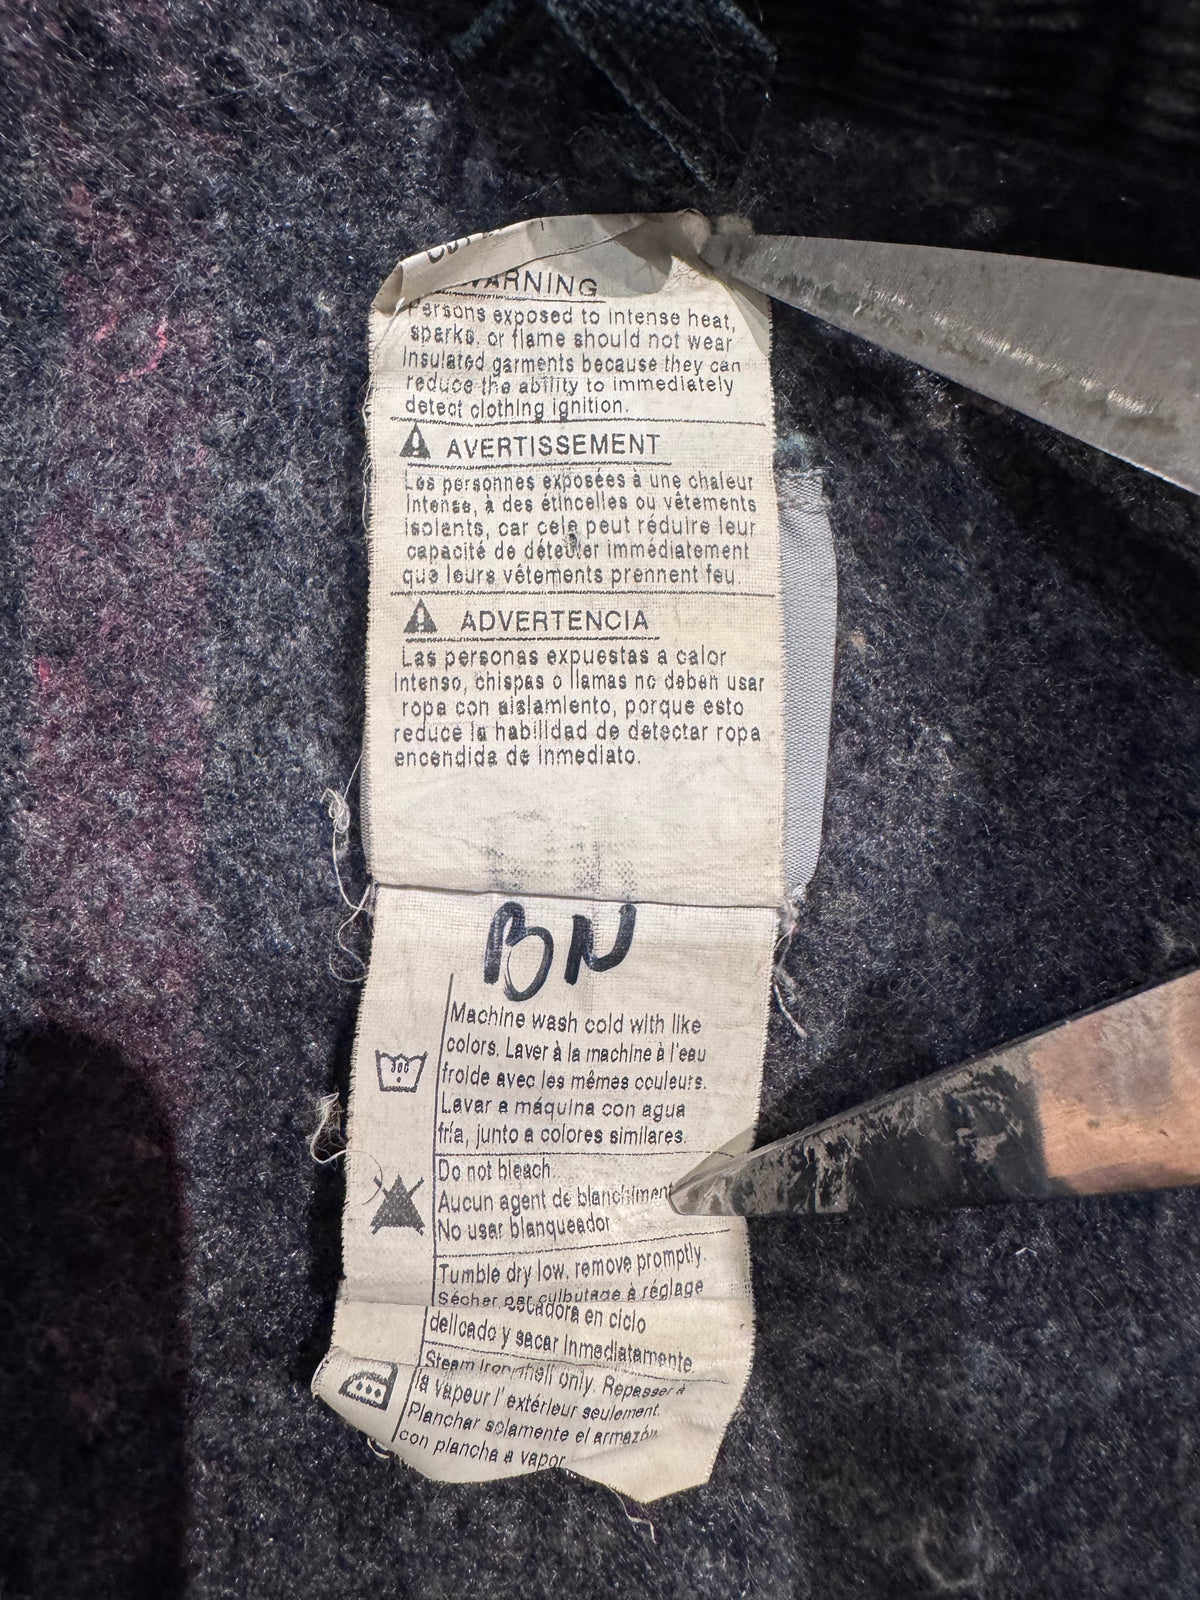 WARNING
Persons exposed to intense heat,
sparks, or flame should not wear
insulated garments because they can
reduce the ability to immediately
detect clothing ignition.
AVERTISSEMENT
Les personnes exposées à une chaleur
intense, à des étincelles ou vêtements
isolants, car cela peut réduire leur
capacité de détecter immédiatement
que leurs vêtements prennent feu.
ADVERTENCIA
Las personas expuestas a calor
intenso, chispas o llamas no deben usar
ropa con aislamiento, porque esto
reduce la habilidad de detectar ropa
encendida de inmediato.
BN
Machine wash cold with like
colors. Laver à la machine à l'eau
froide avec les mêmes couleurs.
Lavar a máquina con agua
fría, junto a colores similares.
Do not bleach.
Aucun agent de blanchiment
No usar blanqueador
Tumble dry low, remove promptly.
Sécher par culbutage à réglage
en ciclo
delicado y sacar inmediatamente
Steam Iron shell only. Repasser à
la vapeur l'extérieur seulement.
Planchar solamente el armazón
con plancha a vapor